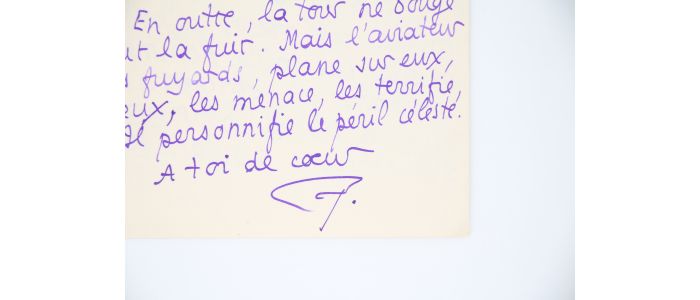 En outre, la tour ne bouge
ut la fuir. Mais l'aviateur
s fuyards, plane sur eux,
eux, les menace, les terrifie,
Il personnifie le péril céleste.
A toi de cœur